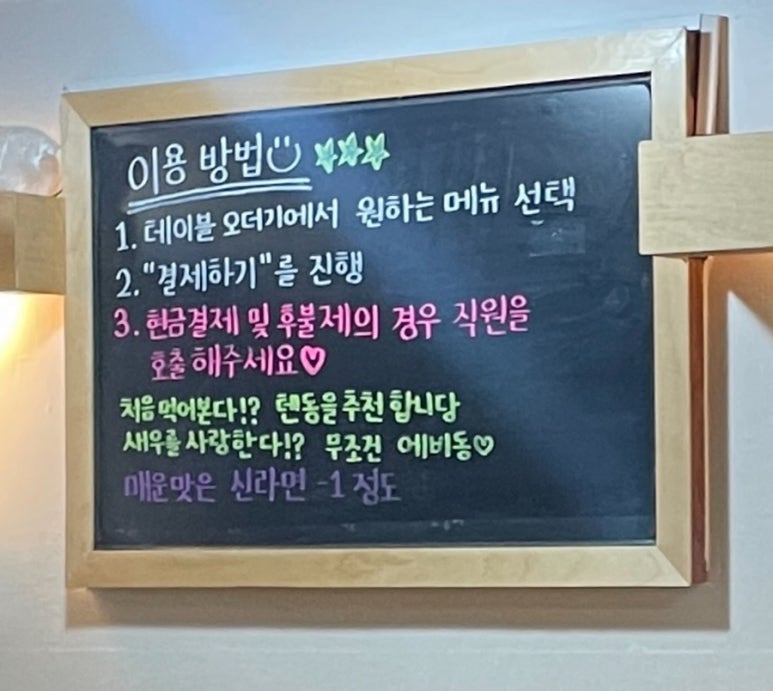 이용 방법
1. 테이블 오더기에서 원하는 메뉴 선택
2. "결제하기"를 진행
3. 현금결제 및 후불제의 경우 직원을
호출해주세요♡
처음 먹어본다!? 텐동을 추천 합니당
새우를 사랑한다!? 무조건 에비동♡
매운맛은 신라면 -1 정도